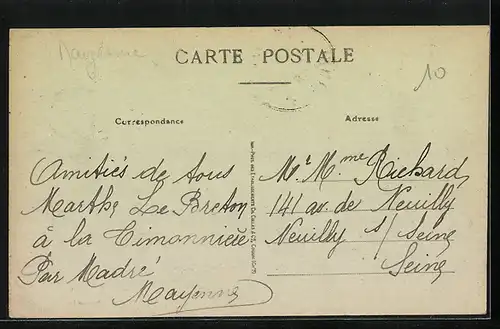 Mayenne
CARTE POSTALE
10
Correspondance
Adresse
Amitiés de tous
Marthe Le Breton
à la Timonnière
Par Madré
Mayenne
Mr. Mme Richard
141 av. de Neuilly
Neuilly s/ Seine
Seine